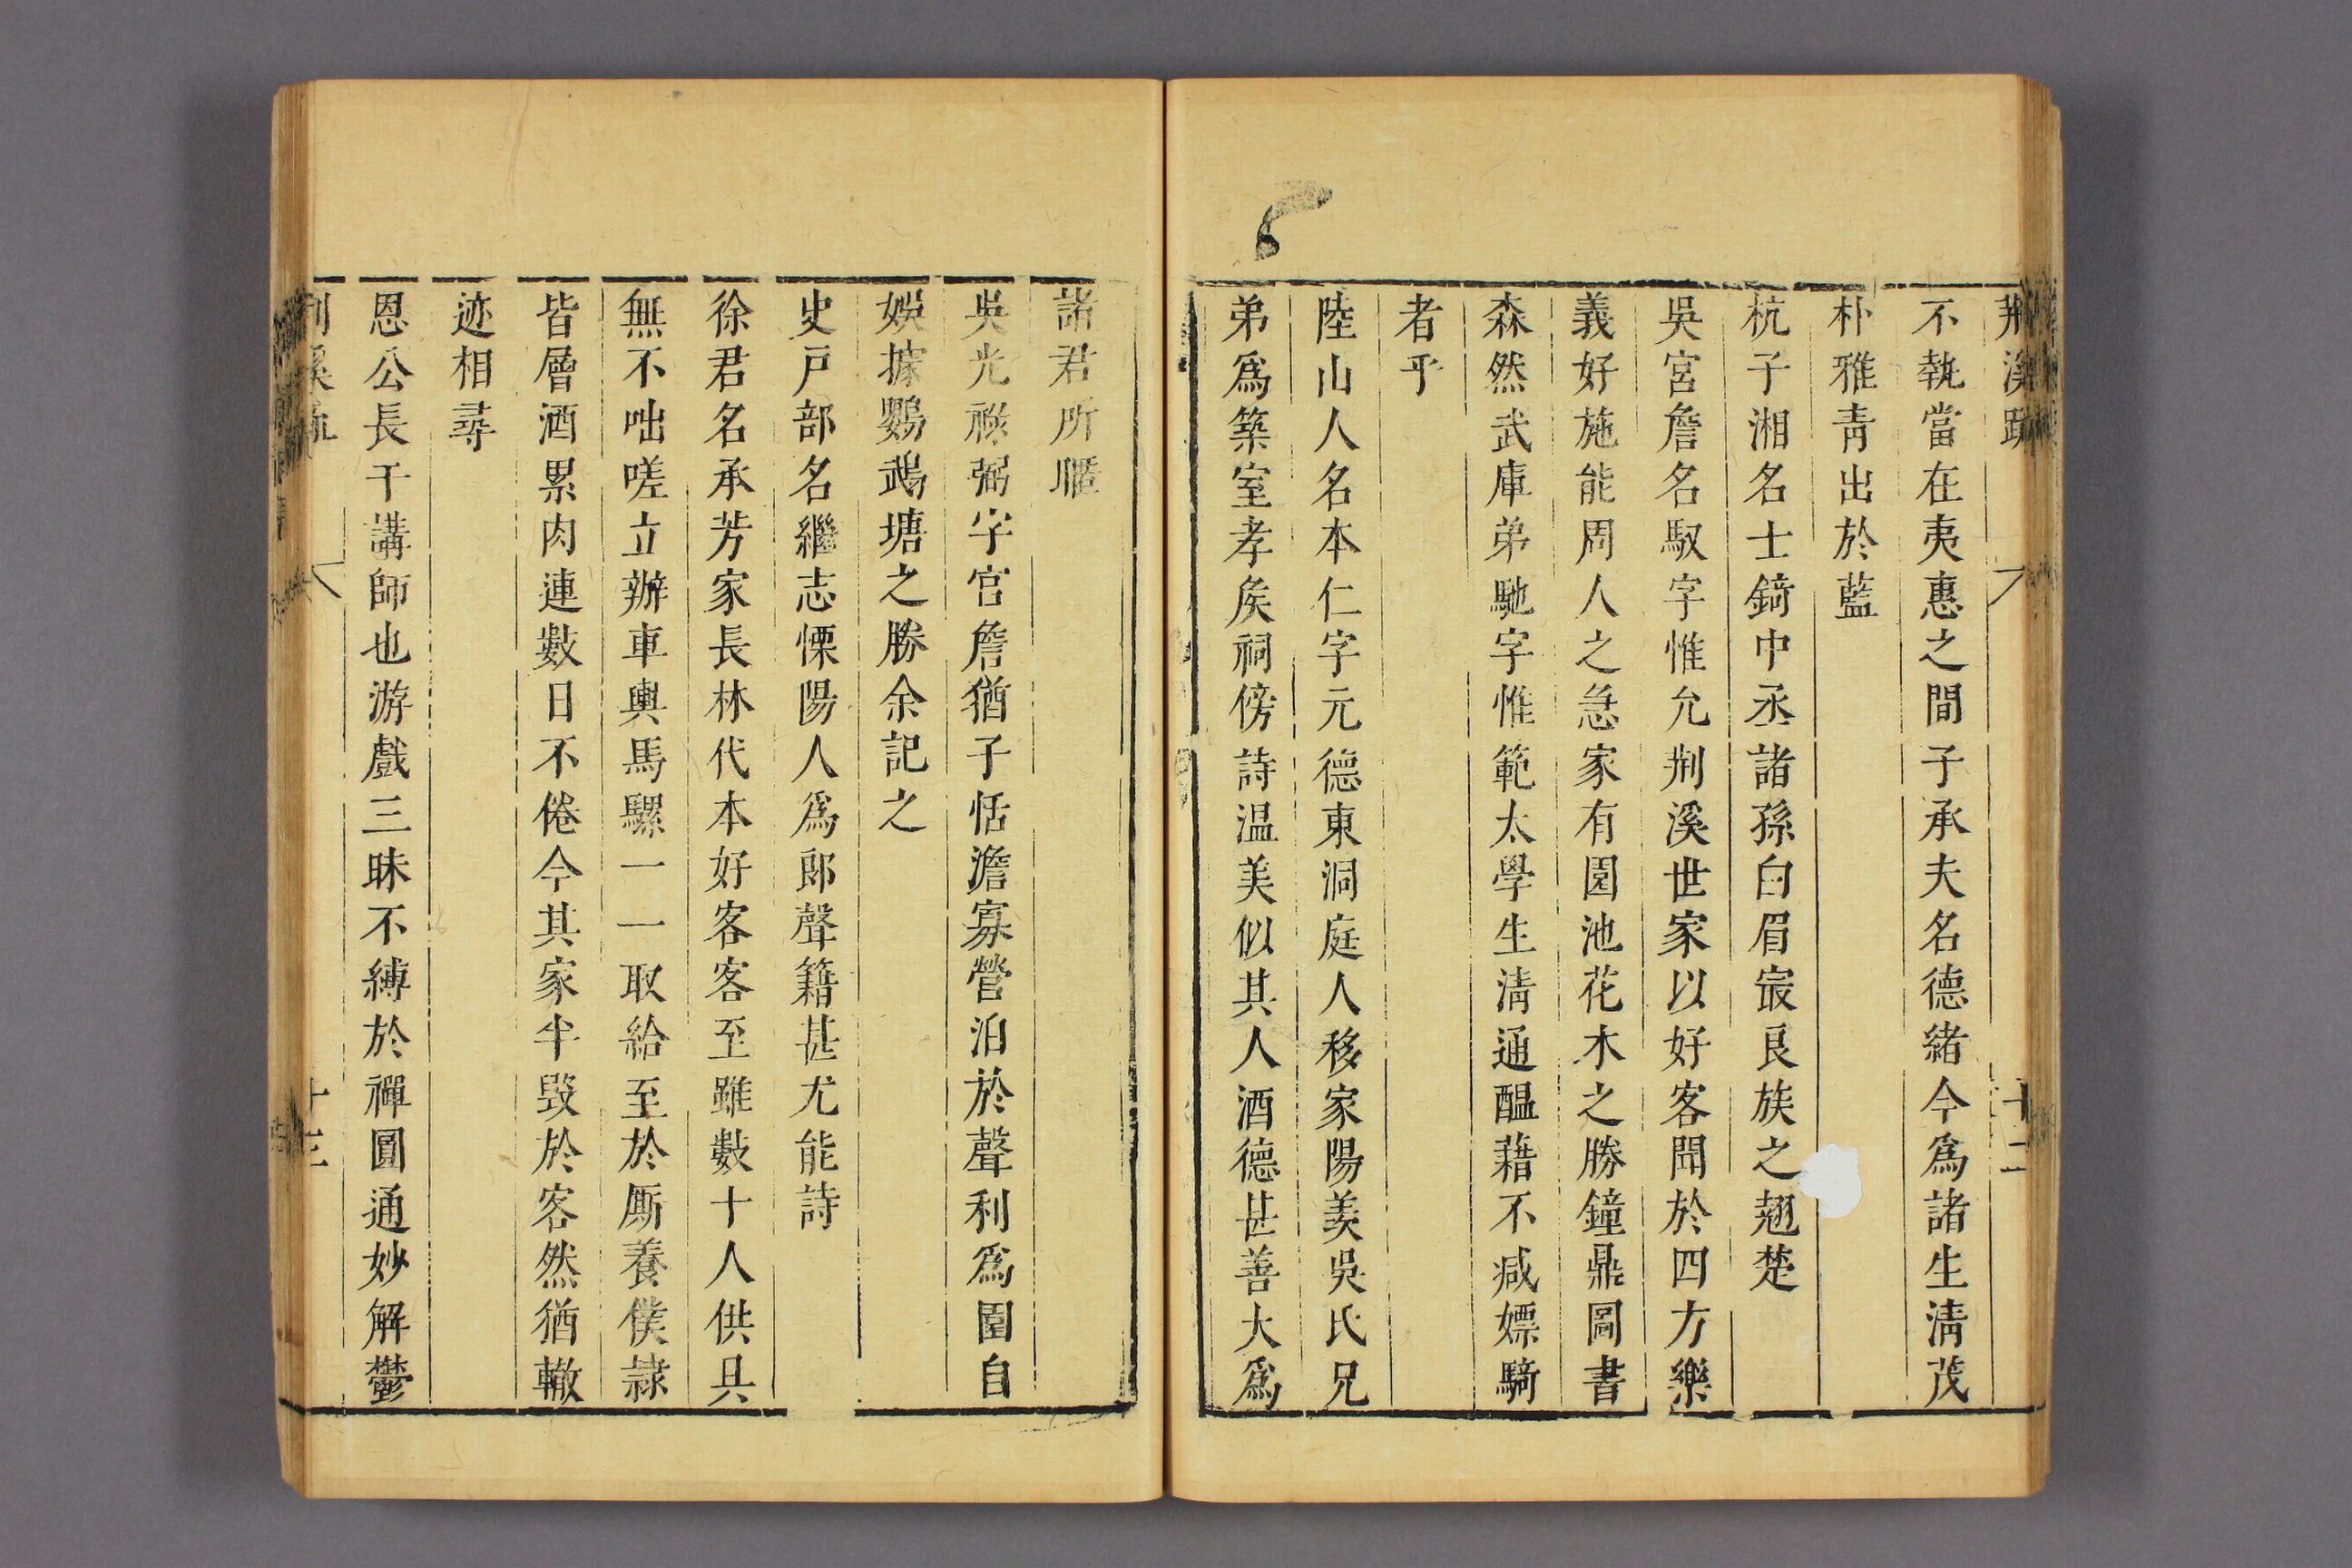 荆溪疏 十二
不執當在夷惠之間子承夫名德緒今爲諸生淸茂
朴雅靑出於藍
杭子湘名士錡中丞諸孫白眉寂良族之翹楚
吳宮詹名馭字惟允荆溪世家以好客聞於四方樂
義好施能周人之急家有園池花木之勝鐘鼎圖書
森然武庫弟馳字惟範太學生淸通醞藉不减嫖騎
者乎
陸山人名本仁字元德東洞庭人移家陽羨吳氏兄
弟爲築室孝矦祠傍詩温美似其人酒德甚善大爲
諸君所暱
吳光祿弼字宮詹猶子恬澹寡營泊於聲利爲園自
娛據鸚鵡塘之勝余記之
史戶部名繼志慄陽人爲郎聲籍甚尤能詩
徐君名承芳家長林代本好客客至雖數十人供具
無不咄嗟立辦車輿馬騾一一取給至於厮養僕隷
皆層酒累肉連數日不倦今其家半毀於客然猶轍
迹相尋
恩公長干講師也游戲三昧不縛於禪圓通妙解鬱
荆溪疏 十三